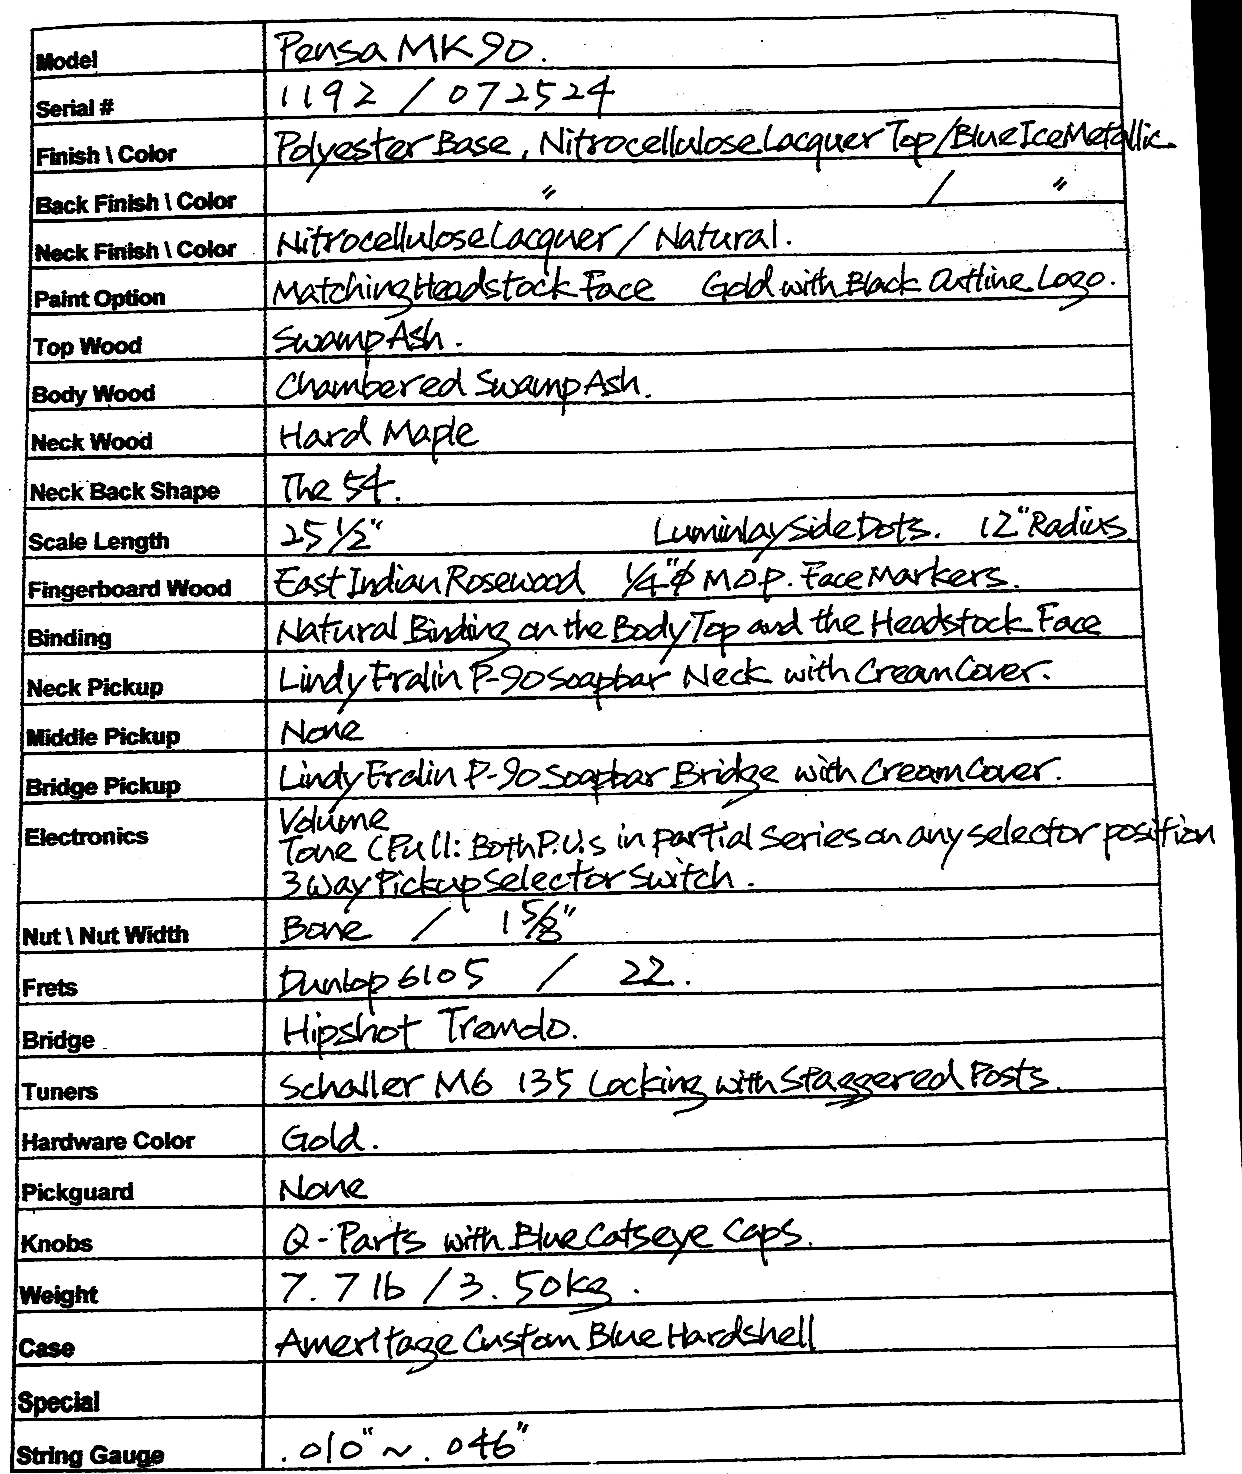 Model Pensa MK 90.
Serial # 1192 / 072524
Finish \ Color Polyester Base, Nitrocellulose Lacquer Top / Blue Ice Metallic.
Back Finish \ Color 〃 / 〃
Neck Finish \ Color Nitrocellulose Lacquer / Natural.
Paint Option Matching Headstock Face Gold with Black Outline Logo.
Top Wood Swamp Ash.
Body Wood Chambered Swamp Ash.
Neck Wood Hard Maple
Neck Back Shape The 54.
Scale Length 25 1/2" Luminlay Side Dots. 12" Radius
Fingerboard Wood East Indian Rosewood 1/4"φ M.O.P. Face Markers.
Binding Natural Binding on the Body Top and the Headstock Face
Neck Pickup Lindy Fralin P-90 Soapbar Neck with Cream Cover.
Middle Pickup None
Bridge Pickup Lindy Fralin P-90 Soapbar Bridge with Cream Cover.
Electronics Volume
Tone (Pull: Both P.U.s in partial series on any selector position
3 way Pickup Selector Switch.
Nut \ Nut Width Bone / 1 5/8"
Frets Dunlop 6105 / 22.
Bridge Hipshot Tremolo.
Tuners Schaller M6 135 Locking with Staggered Posts.
Hardware Color Gold.
Pickguard None
Knobs Q-Parts with Blue Catseye Caps.
Weight 7.7 lb / 3.50 kg.
Case Ameritage Custom Blue Hardshell
Special
String Gauge .010" ~ .046"